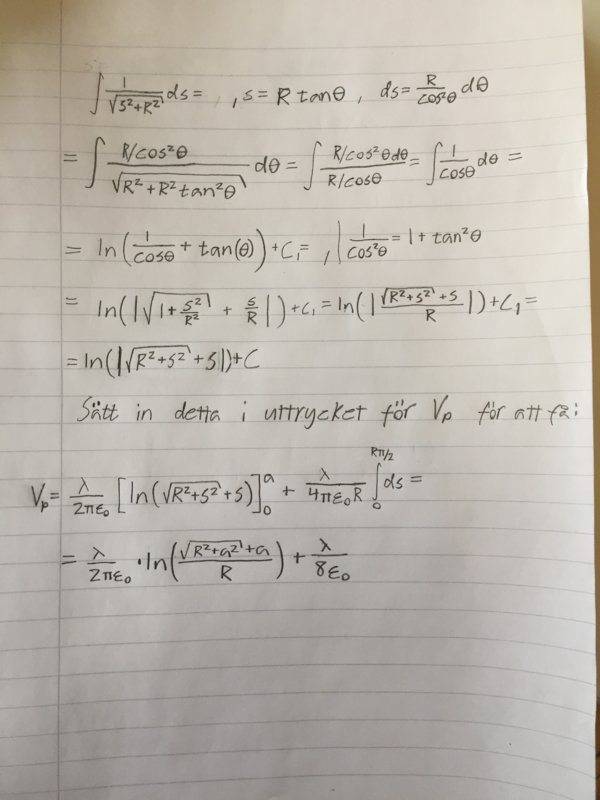 ∫ 1/√(s²+R²) ds = , s = R tanθ , ds = R/cos²θ dθ
= ∫ (R/cos²θ)/√(R²+R²tan²θ) dθ = ∫ (R/cosθ dθ)/(R/cosθ) = ∫ 1/cosθ dθ =
= ln(1/cosθ + tan(θ)) + C₁ = , | 1/cos²θ = 1 + tan²θ
= ln(|√(1+s²/R²) + s/R|) + c₁ = ln(|(√(R²+s²)+s)/R|) + C₁ =
= ln(|√(R²+s²)+s|) + C
Sätt in detta i uttrycket för Vₚ för att få:
Vₚ = λ/(2πε₀) [ln(√(R²+s²)+s)]₀ᵃ + λ/(4πε₀R) ∫₀^(Rπ/2) ds =
= λ/(2πε₀) · ln((√(R²+a²)+a)/R) + λ/(8ε₀)